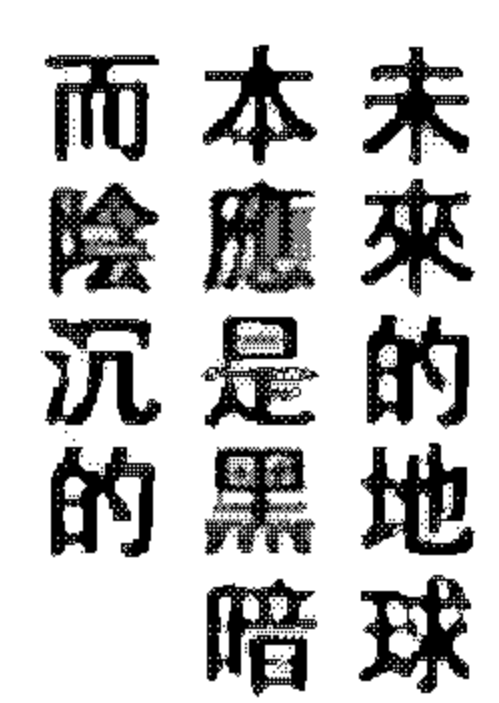 未來的地球
本應是黑暗
而陰沉的